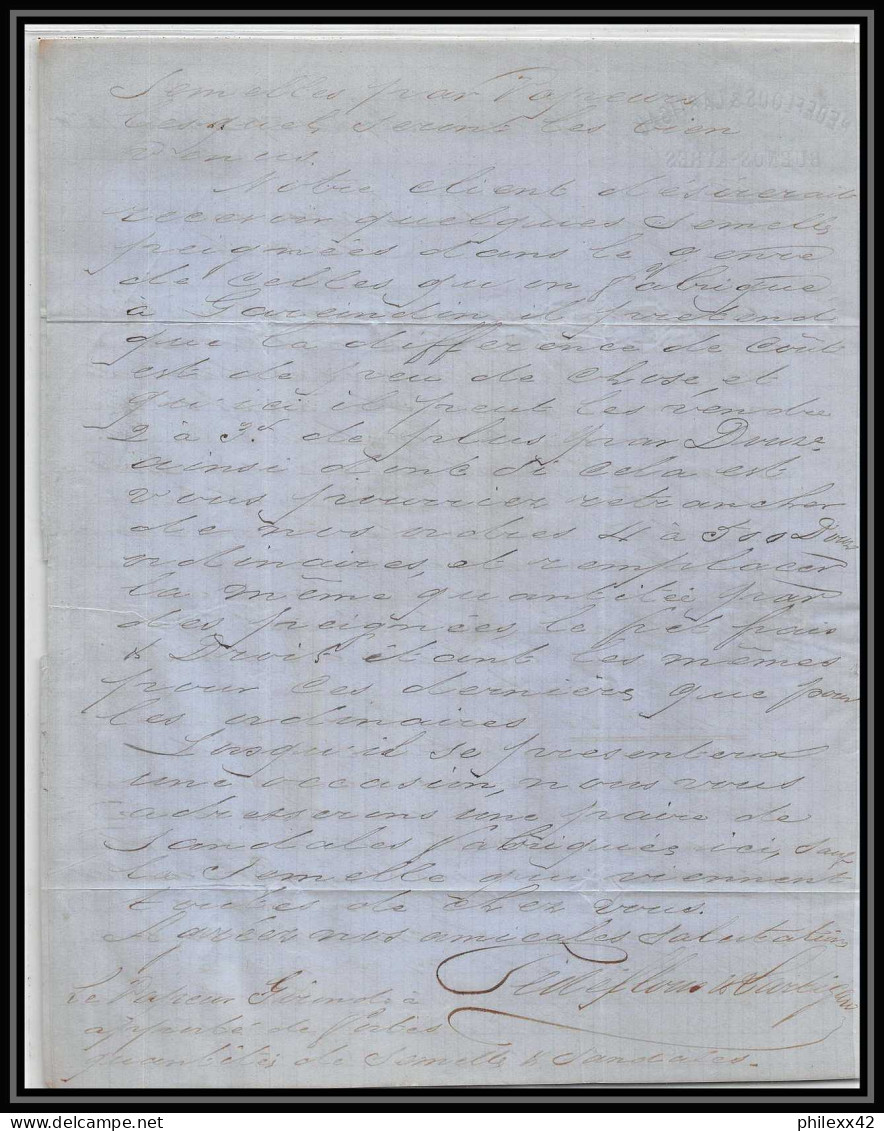 Semelles par Vapeurs
lesquels seront les bien
venus.
Notre client désirerait
recevoir quelques semelles
peignées dans le genre
de celles qu'on fabrique
à il prétend
que la différence de coût
est de peu de chose, et
qu'ici il peut les vendre
2 à 3 de plus par Douze
ainsi dont si cela est
vous pourriez retrancher
de nos ordres 4 à 500 Douz
ordinaires, et remplacer
la même quantitée par
des peignées, le frêt, frais
& Droit étant les mêmes
pour ces dernières que pour
les ordinaires
Lorsqu'il se presentera
une occasion, nous vous
adresserons une paire de
Sandales fabriquées ici, sauf
la Semelle qui viennent
toutes de chez vous.
Agréez nos amicales salutations
Le Vapeur Gironde à
apporté de fortes
quantités de semelles & Sandales.
BUENOS-AYRES
philexx42